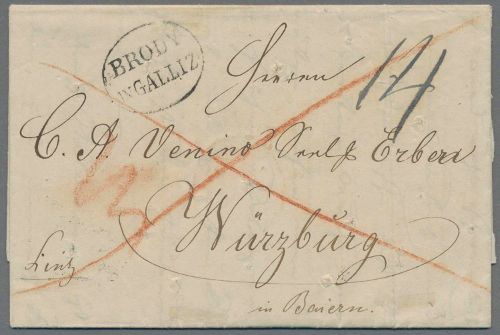 BRODY
IN GALLIZ
14
Herren
C. A. Venino Seel. Erben
13
Würzburg
Linz
in Baiern.